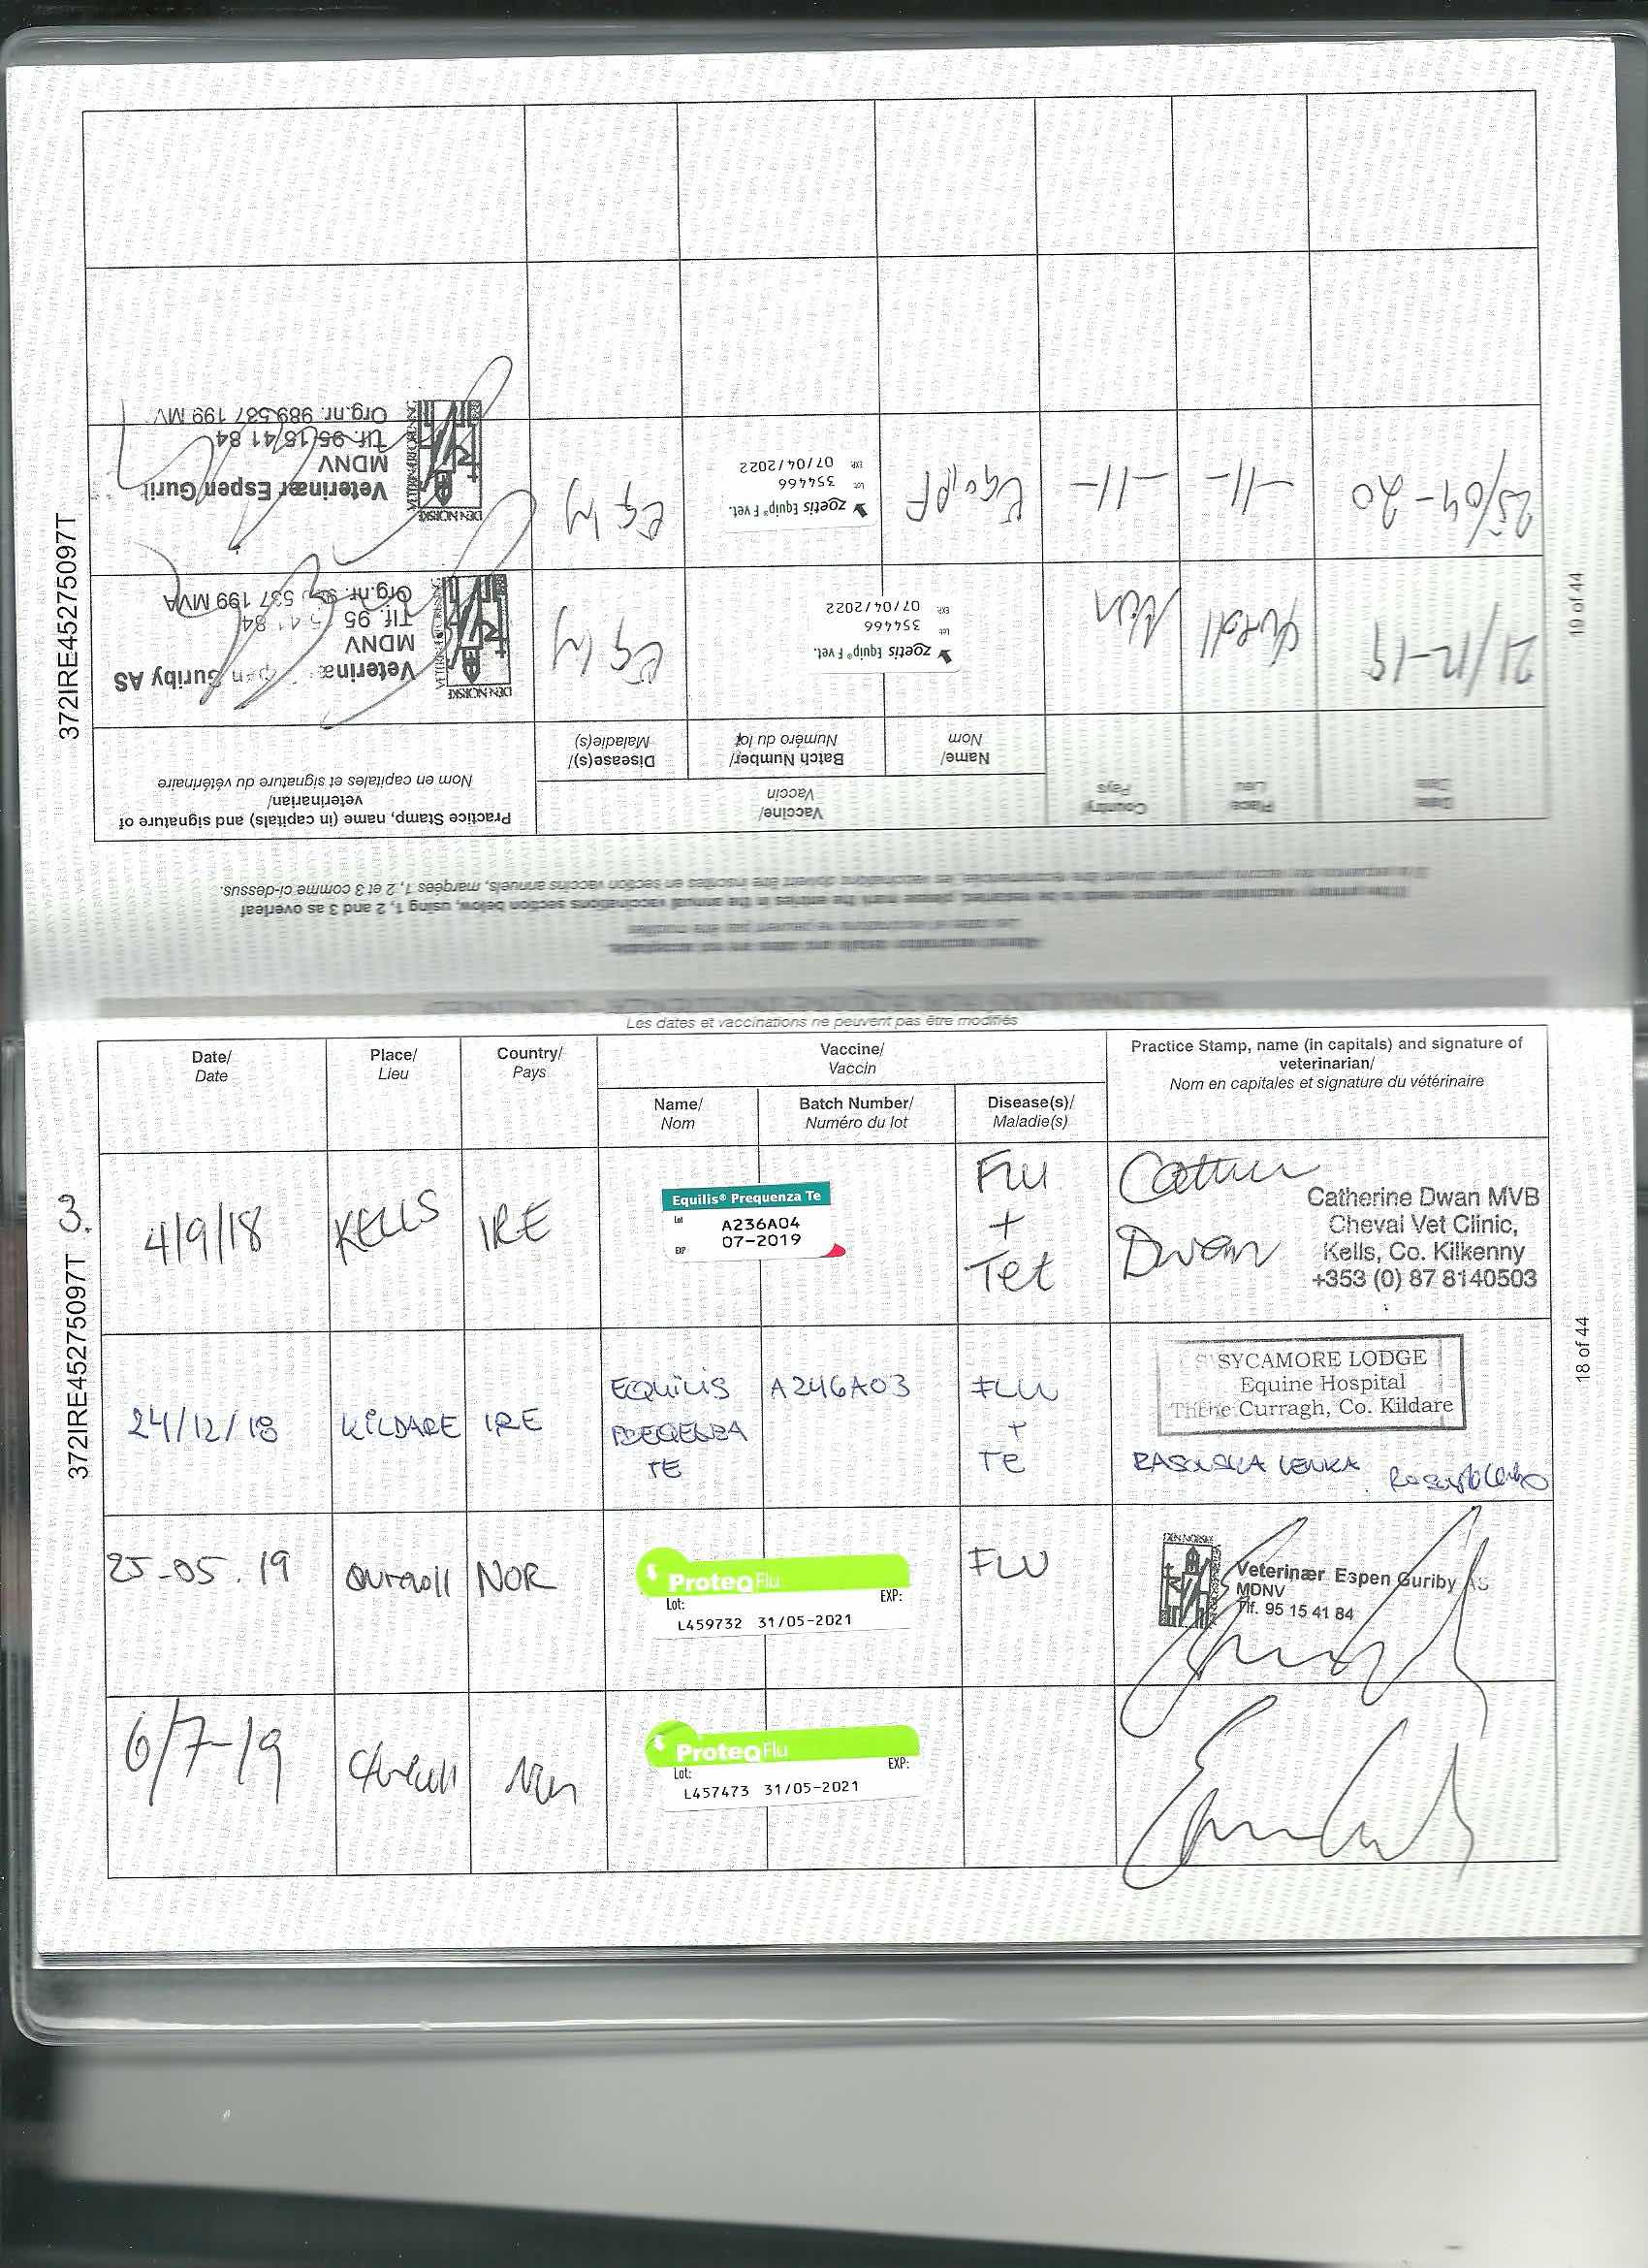 Les dates et vaccinations ne peuvent pas être modifiés
Date/
Date
Place/
Lieu
Country/
Pays
Vaccine/
Vaccin
Name/
Nom
Batch Number/
Numéro du lot
Disease(s)/
Maladie(s)
Practice Stamp, name (in capitals) and signature of
veterinarian/
Nom en capitales et signature du vétérinaire
372IRE45275097T 3.
4/9/18
KELLS
IRE
Equilis® Prequenza Te
Lot A236A04
EXP 07-2019
Flu
+
Tet
Dwan
Catherine Dwan MVB
Cheval Vet Clinic,
Kells, Co. Kilkenny
+353 (0) 87 8140503
24/12/18
KILDARE
IRE
EQUILIS
TE
A246A03
FLU
+
TE
SYCAMORE LODGE
Equine Hospital
The Curragh, Co. Kildare
LENKA
25-05.19
NOR
ProteqFlu
Lot: EXP:
L459732 31/05-2021
FLU
DEN NORSKE
Veterinær Espen Guriby AS
MDNV
Tlf. 95 15 41 84
6/7-19
Nor
ProteqFlu
Lot: EXP:
L457473 31/05-2021
18 of 44
If the primary vaccination sequence needs to be restarted, please mark the entries in the annual vaccinations section below, using 1, 2 and 3 as overleaf
vaccins annuels, marquées 1, 2 et 3 comme ci-dessus.
Date
Date
Place
Lieu
Country
Pays
Vaccine/
Vaccin
Name/
Nom
Batch Number/
Numéro du lot
Disease(s)/
Maladie(s)
Practice Stamp, name (in capitals) and signature of
veterinarian/
Nom en capitales et signature du vétérinaire
372IRE45275097T
21/12-19
Nor
zoetis Equip® F vet.
Lot 354466
EXP 07/04/2022
DEN NORSKE
Guriby AS
MDNV
Tlf. 95
Org.nr. 537 199 MVA
25/04-20
-11-
-11-
Equip F
zoetis Equip® F vet.
Lot 354466
EXP 07/04/2022
DEN NORSKE
VETERINÆRFORENING
Veterinær Espen Gurib
MDNV
Tlf. 95 15 41 84
Org.nr. 989 537 199 MV
19 of 44